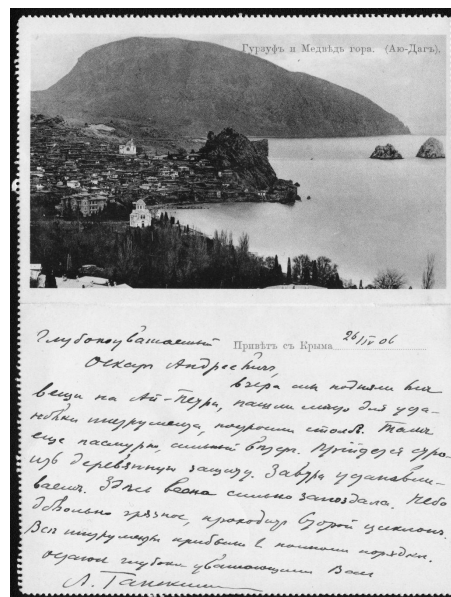 Гурзуфъ и Медвѣдь гора. (Аю-Дагъ).
Привѣтъ съ Крыма 26/IV 06
Глубокоуважаемый
Оскаръ Андреевичъ,
вчера мы подняли все
вещи на Ай-Петри, нашли мѣсто для уста-
новки инструмента, построили столбъ. Тамъ
еще пасмурно, сильный вѣтеръ. Придется
изъ деревянную защиту. Завтра устанавли-
ваемъ. Здѣсь весна сильно запоздала. Небо
довольно грязное, проходитъ второй циклонъ.
Всѣ инструменты прибыли въ полномъ порядкѣ.
глубоко уважающимъ Васъ